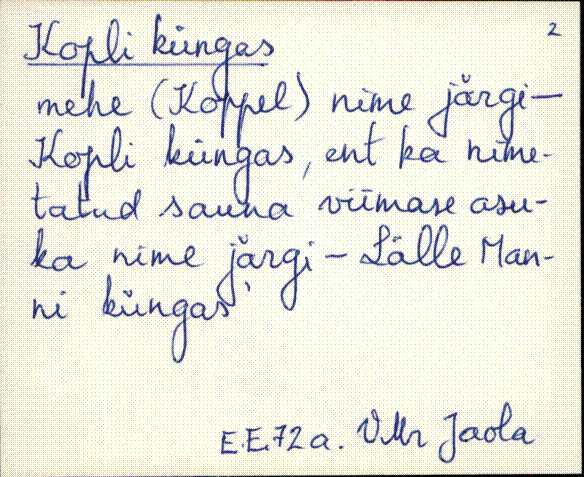 Kopli küngas 2
mehe (Koppel) nime järgi—
Kopli küngas, ent ka nime-
tatud sauna viimase asu-
ka nime järgi — Lälle Man-
ni küngas'
E.E. 72 a. VMr Jaola